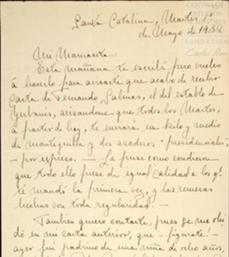 Santa Catalina, Martes
de Mayo de 19
Mi Mamacita
Esta mañana te escribí pero vuelvo
a hacerlo para avisarte que acabo de recibir
Carta de Fernando Salinas, el del establo de
avisandome que todos los Martes,
a partir de hoy, te enviará un kilo y medio
de mantequilla y dos asaderos
por express. Le puse como condicion
que todo ello fuese de igual calidad a los q!
te mandó la primera vez, y las remesas
hechas con toda regularidad.
Tambien quiero contarte, pues se me olvi
dó en mi carta anterior, que - figurate! -
ayer fuí padrino de una niña de ocho años,